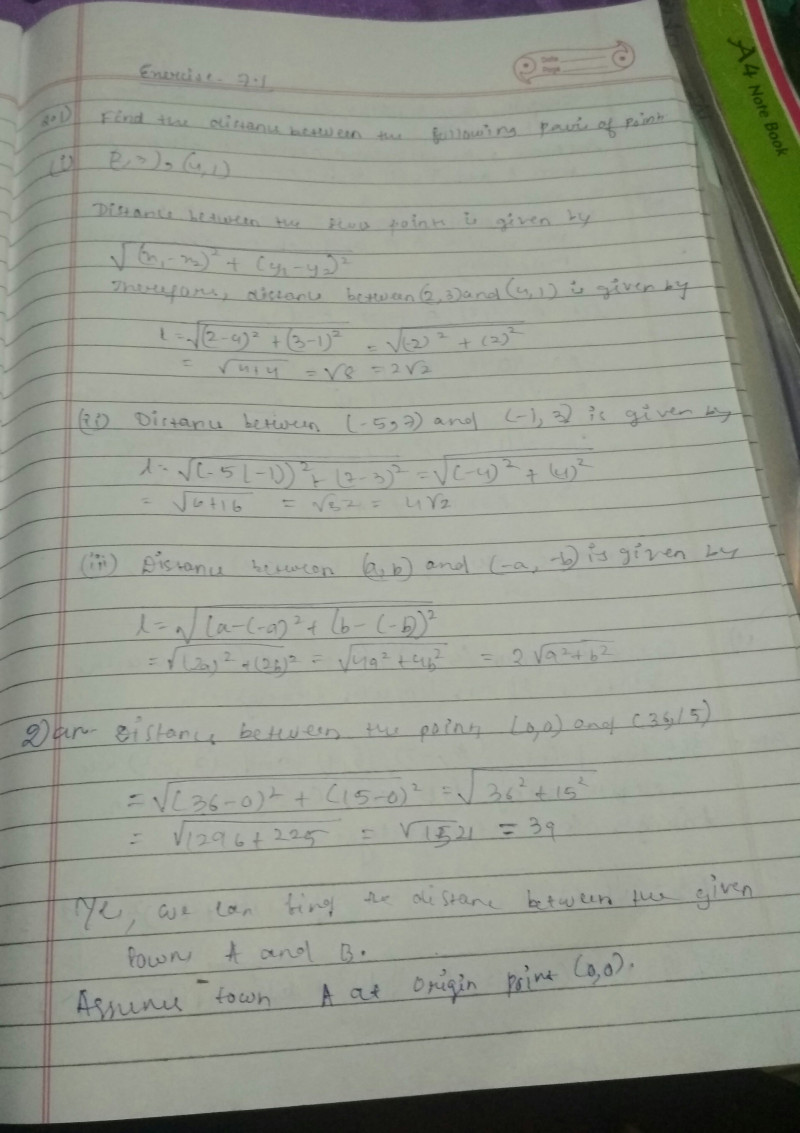 Exercise 7.1
Date
Page
A4 Note Book
Q.1) Find the distance between the following pairs of point
(i) (2, 3), (4,1)
Distance between the two points is given by
√(x₁-x₂)² + (y₁-y₂)²
Therefore, distance between (2,3) and (4,1) is given by
l = √(2-4)² + (3-1)² = √(-2)² + (2)²
= √4+4 = √8 = 2√2
(ii) Distance between (-5,7) and (-1, 3) is given by
l = √(-5(-1))² + (7-3)² = √(-4)² + (4)²
= √16+16 = √32 = 4√2
(iii) Distance between (a,b) and (-a, -b) is given by
l = √(a-(-a)² + (b-(-b))²
= √(2a)² + (2b)² = √4a² + 4b² = 2√a²+b²
2) Distance between the points (0,0) and (36,15)
= √(36-0)² + (15-0)² = √36² + 15²
= √1296 + 225 = √1521 = 39
we can find the distance between the given
town A and B.
Assume town A at origin point (0,0).